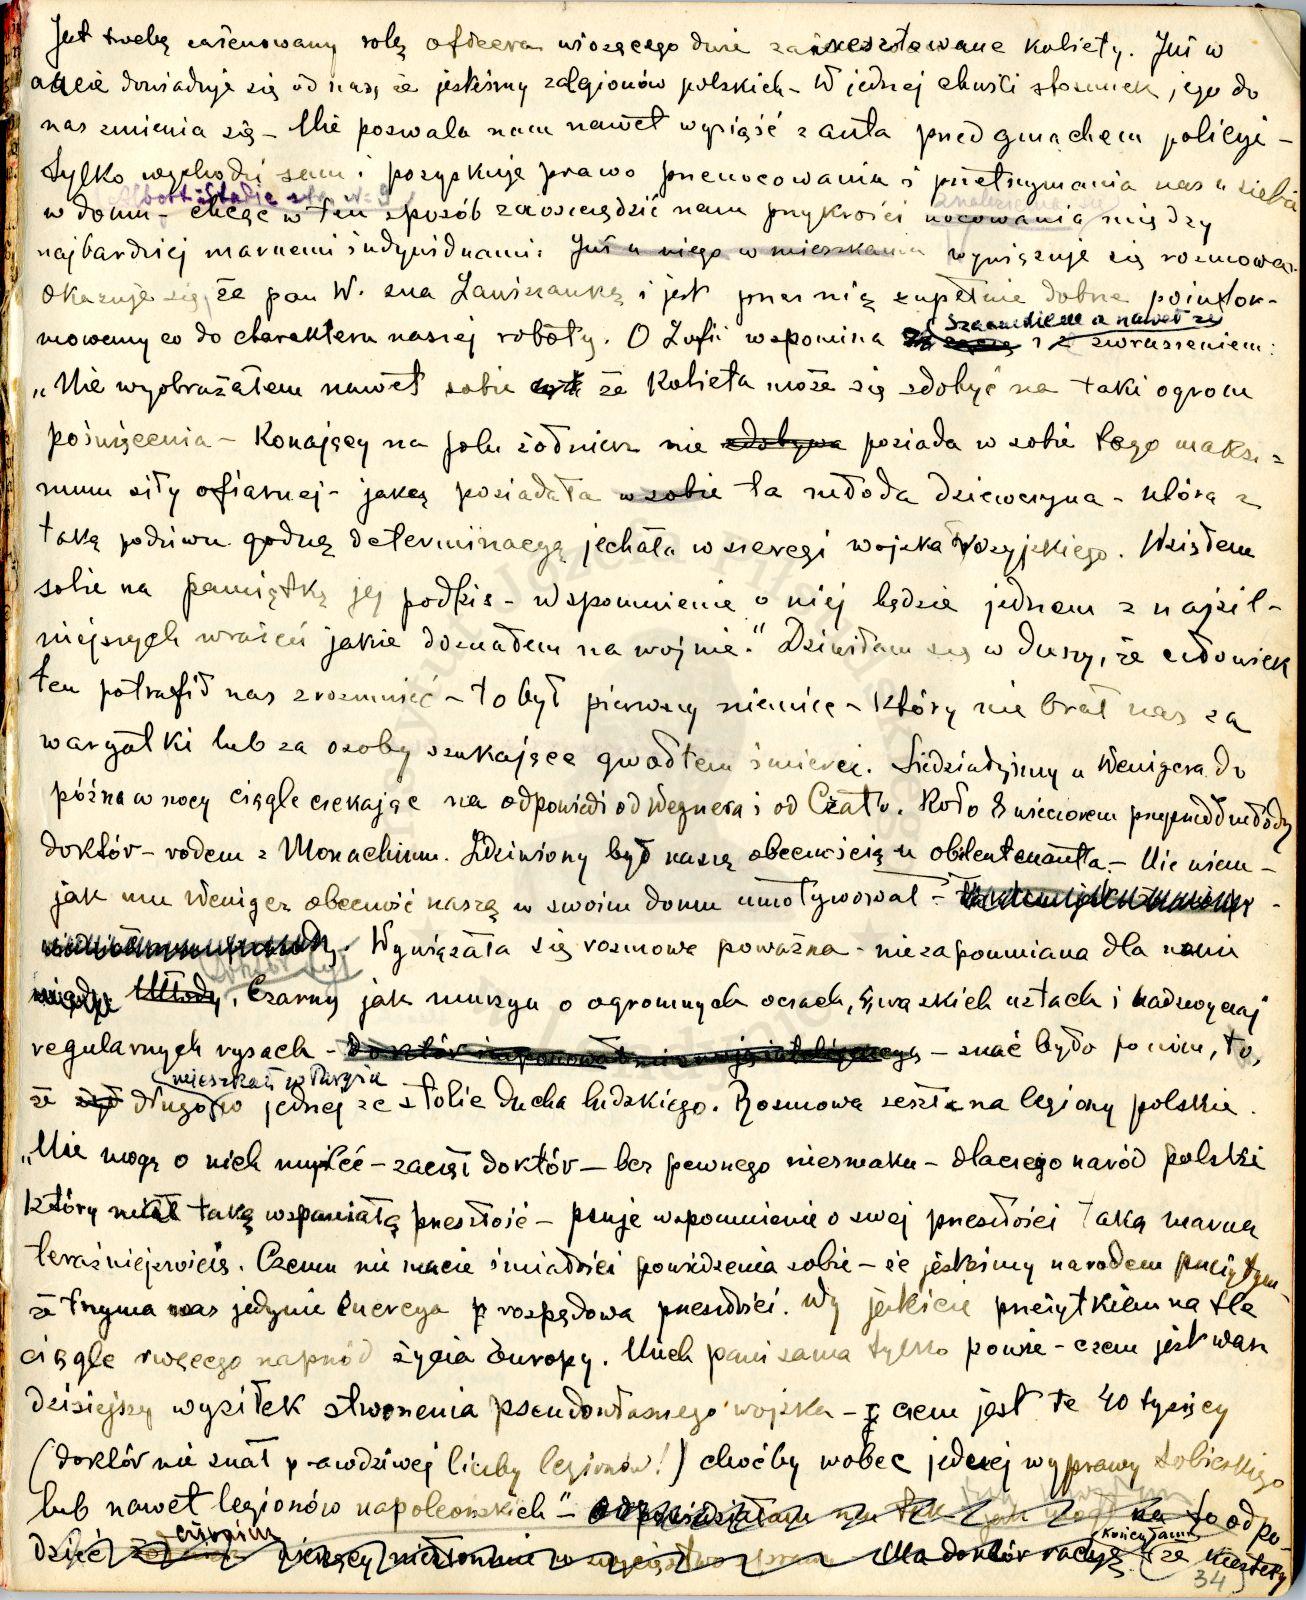 Jest trochę zażenowany rolą oficera wiozącego dwie zaaresztowane kobiety. Już w
aucie dowiaduje się od nas, że jesteśmy z legionów polskich – W jednej chwili stosunek jego do
nas zmienia się – Nie pozwala nam nawet wysiąść z auta przed gmachem policyi –
tylko wychodzi sam i pozyskuje prawo przenocowania i przetrzymania nas u siebie
w domu – chcąc w ten sposób zaoszczędzić nam przykrości nocowania między
najbardziej marnemi indywiduami. Już u niego w mieszkaniu wywiązuje się rozmowa.
Okazuje się, że pan W. zna Zawiszankę i jest przez nią zupełnie dobrze poinfor-
mowany co do charakteru naszej roboty. O Zofii wspomina z szacunkiem a nawet ze wzruszeniem:
„Nie wyobrażałem nawet sobie że kobieta może się zdobyć na taki ogrom
poświęcenia – Konający na polu żołnierz nie zdobywa posiada w sobie tego maksi-
mum siły ofiarnej – jaką posiadała w sobie ta młoda dziewczyna – która z
taką podziwu godną determinacyą jechała w szeregi wojska rosyjskiego. Wziąłem
sobie na pamiątkę jej podpis – wspomnienie o niej będzie jednem z najsil-
niejszych wrażeń jakie doznałem na wojnie." Dziwiłam się w duszy, że człowiek
ten potrafił nas zrozumieć – to był pierwszy niemiec – który nie brał nas za
waryatki lub za osoby szukające gwałtem śmierci. Siedziałyśmy u Wenigera do
późna w nocy ciągle czekając na odpowiedź od Wegnera i od Czatu. Koło 8 wieczorem przyszedł młody
doktór – rodem z Monachium. Zdziwiony był naszą obecnością u obleutenanta – Nie wiem –
jak mu Weniger obecność naszą w swoim domu umotywował –
Wywiązała się rozmowa poważna – niezapomniana dla mnie
Młody, Czarny jak murzyn o ogromnych oczach, wązkich ustach i nadzwyczaj
regularnych rysach – doktór imponował mi swoją inteligencyą – znać było po nim, to,
że żył długo mieszkał w Paryżu jednej ze stolic ducha ludzkiego. Rozmowa zeszła na legiony polskie.
„Nie mogę o nich myśleć – zaczął doktór – bez pewnego niesmaku – dlaczego naród polski
który miał taką wspaniałą przeszłość – psuje wspomnienie o swej przeszłości taką marną
teraźniejszością. Czemu nie macie śmiałości powiedzenia sobie – że jesteśmy narodem przeżytym –
że trzyma nas jedynie energya rozpędowa przeszłości. Wy jesteście przeżytkiem na tle
ciągle rwącego naprzód życia Europy. Niech pani sama tylko powie – czem jest wasz
dzisiejszy wysiłek stworzenia pseudowłasnego wojska – czem jest te 40 tysięcy
(doktór nie znał prawdziwej liczby legionów!) choćby wobec jednej wyprawy Sobieskiego
lub nawet legionów napoleońskich" – odpowiedziałam mu na to odpo-
dzieć Ma doktór racyę (kończyłam) że niestety
34